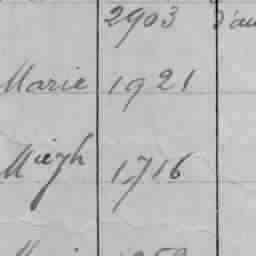 2903 d'au
Marie 1921
Miegh 1716